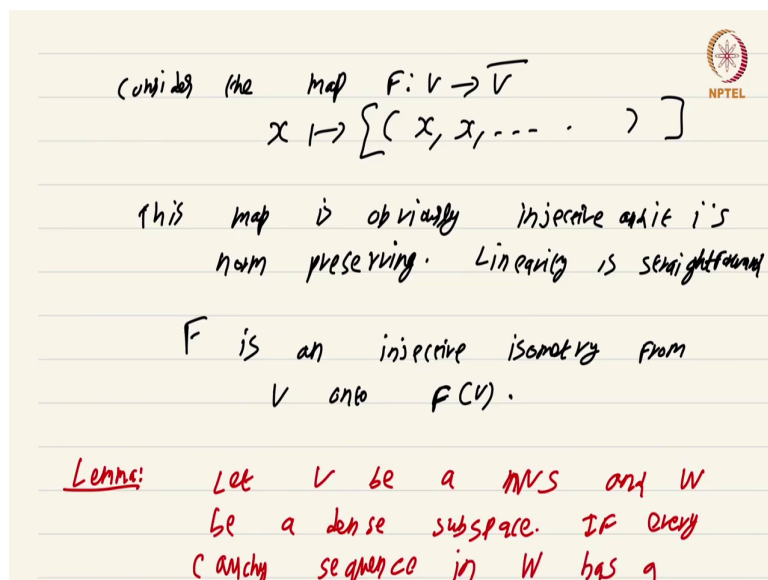 Consider the map F: V → V̅
x ↦ [( x, x, ---- . ) ]
NPTEL
This map is obviously injective and it is
norm preserving. Linearity is straightforward
F is an injective isometry from
V onto F(V).
Lemma: Let V be a NVS and W
be a dense subspace. IF every
Cauchy sequence in W has a